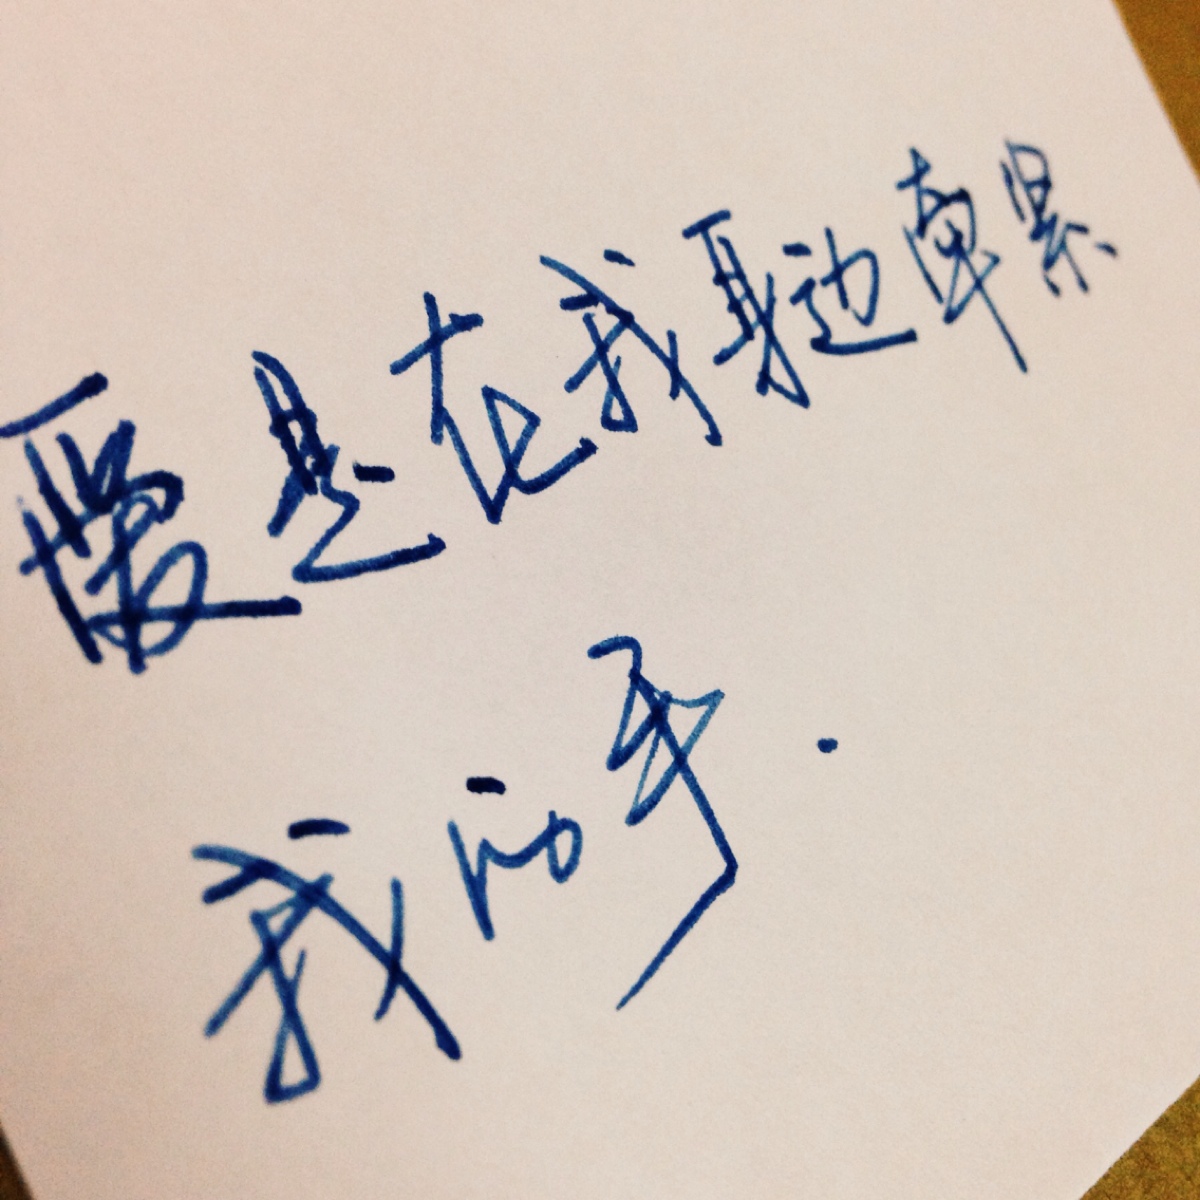 爱是在我身边牵紧
我的手.